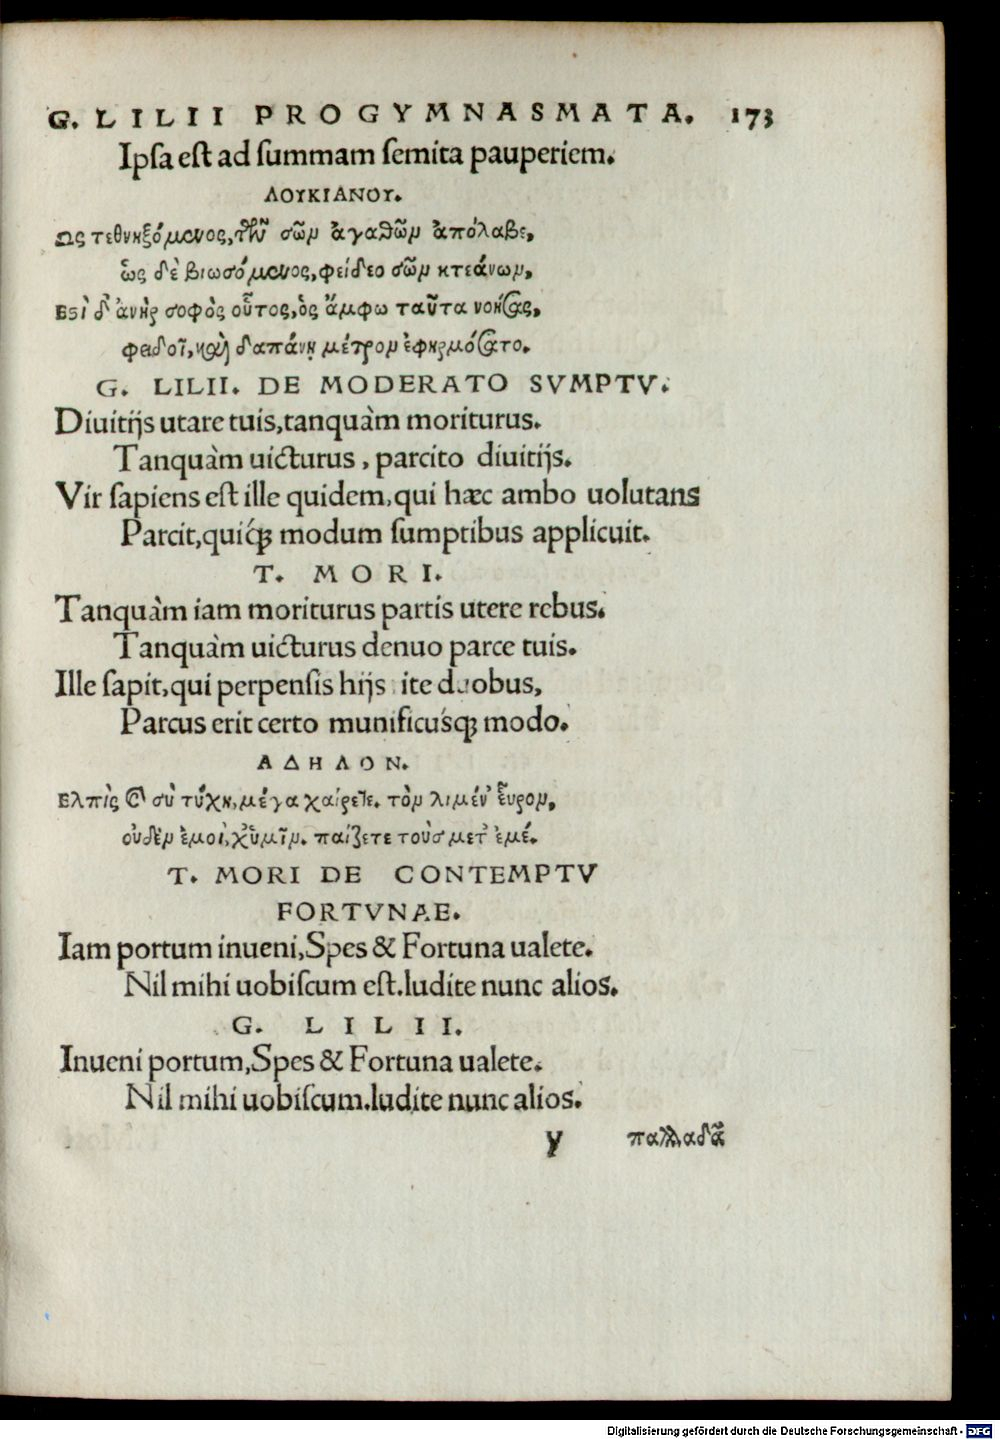 G. LILII PROGYMNASMATA. 173
Ipſa eſt ad ſummam ſemita pauperiem.
ΛΟΥΚΙΑΝΟΥ.
Ως τεθνηξόμενος, τῶν σῶν ἀγαθῶν ἀπόλαβε,
ὡς δὲ βιωσόμενος, φείδεο σῶν κτεάνων,
Εστὶ δ' ἀνὴρ σοφὸς οὗτος, ὃς ἄμφω ταῦτα νοήσας,
φειδοῖ, καὶ δαπάνῃ μέτρον ἐφηρμόσατο.
G. LILII. DE MODERATO SVMPTV.
Diuitijs utare tuis, tanquàm moriturus.
Tanquàm uicturus, parcito diuitijs.
Vir ſapiens eſt ille quidem, qui hæc ambo uolutans
Parcit, quiq́ꝫ modum ſumptibus applicuit.
T. MORI.
Tanquàm iam moriturus partis utere rebus.
Tanquàm uicturus denuo parce tuis.
Ille ſapit, qui perpenſis hijs ite duobus,
Parcus erit certo munificuśqꝫ modo.
ΑΔΗΛΟΝ.
Ελπὶς καὶ σὺ τύχη, μέγα χαίρετε. τὸν λιμέν' εὗρον,
οὐδὲν ἐμοὶ, χ' ὑμῖν. παίζετε τοὺς μετ' ἐμέ.
T. MORI DE CONTEMPTV
FORTVNAE.
Iam portum inueni, Spes & Fortuna ualete.
Nil mihi uobiſcum eſt. ludite nunc alios.
G. LILII.
Inueni portum, Spes & Fortuna ualete.
Nil mihi uobiſcum. ludite nunc alios.
y παλλαδᾶ
Digitalisierung gefördert durch die Deutsche Forschungsgemeinschaft - DFG